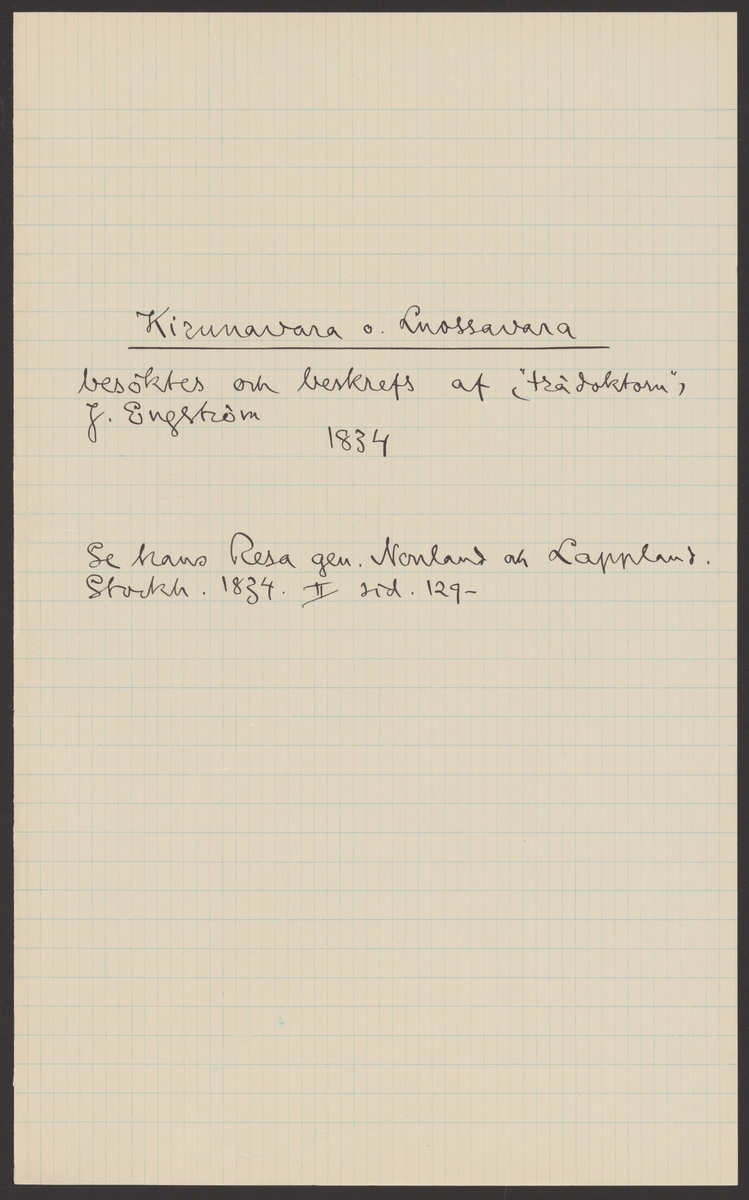 Kirunavara o. Luossavara
besöktes och beskrefs af "trädoktorn",
J. Engström
1834
Se hans Resa gen. Norrland och Lappland.
Stockh. 1834. II sid. 129-